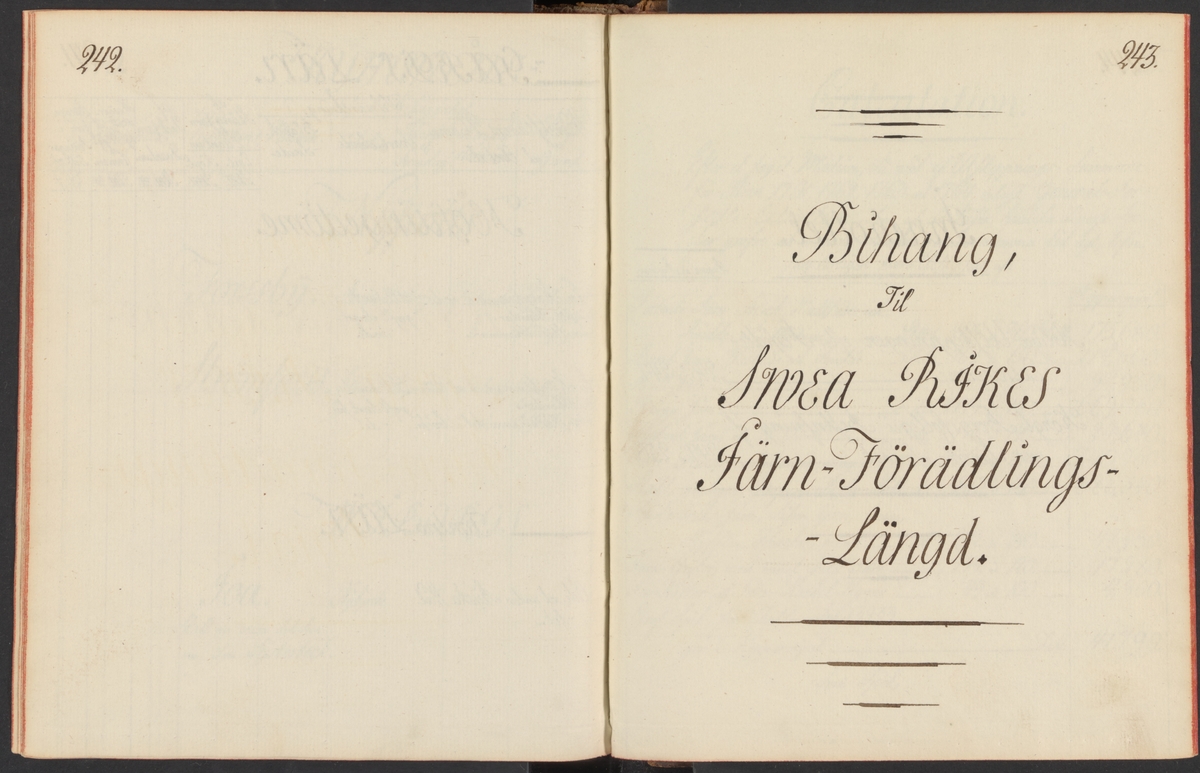 242.
243.
Bihang,
Til
SWEA RIKES
Järn-Förädlings-
-Längd.